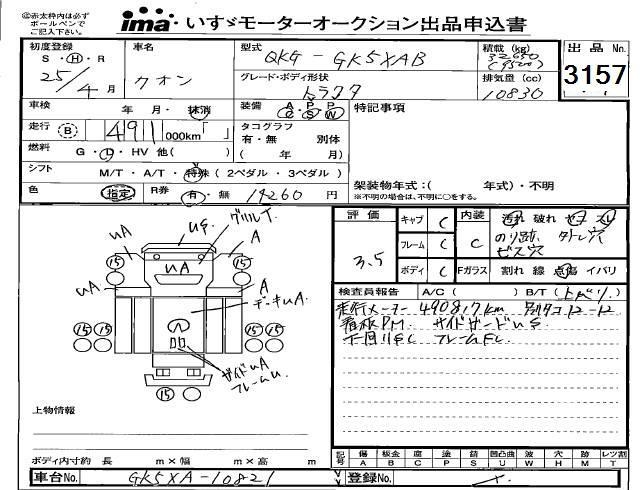 ◎赤太枠内は必ず
ボールペンで
ご記入下さい。
ima いすゞモーターオークション出品申込書
初度登録
S・H・R
25/4月
車名
クオン
型式
QKG-GK5XAB
グレード・ボディ形状
トラクタ
積載 (kg)
(9500)
排気量 (cc)
10830
出品 No.
3157
車検
年・月・抹消
装備
A・P・P
C・S・W
特記事項
走行 B
491 000km「 」
タコグラフ
有・無 別体
( 年 月)
燃料
G・L・HV 他( )
シフト
M/T・A/T・特殊(2ペダル・3ペダル)
色
指定
R券
有・無
19260円
架装物年式:( 年式)・不明
※不明の場合は、年式に○をする。
評価
3.5
キャブ C
フレーム C
ボディ C
内装
C
Fガラス
汚れ 破れ コゲ スレ
のり跡 タトレ穴
ビス穴
割れ 線 点傷 イバリ
検査員報告 A/C( ) B/T(上ベリ)
走行メーター 4908.7km 別タコ12-12
看板P.M. サイドガードUS
下回りSC フレームEC
uA
US
グリルT
A
15
uA
15
uA
A
デッキuA
15 15
15 15
サイドuA
フレームU
15
上物情報
ボディ内寸約 長 m×幅 m×高 m
記号
傷 A
板金 B
腐 C
塗 P
錆 S
凹凸曲 U
波 W
穴 H
跡 M
レツ割 T
車台No.
GK5XA-10821
登録No.